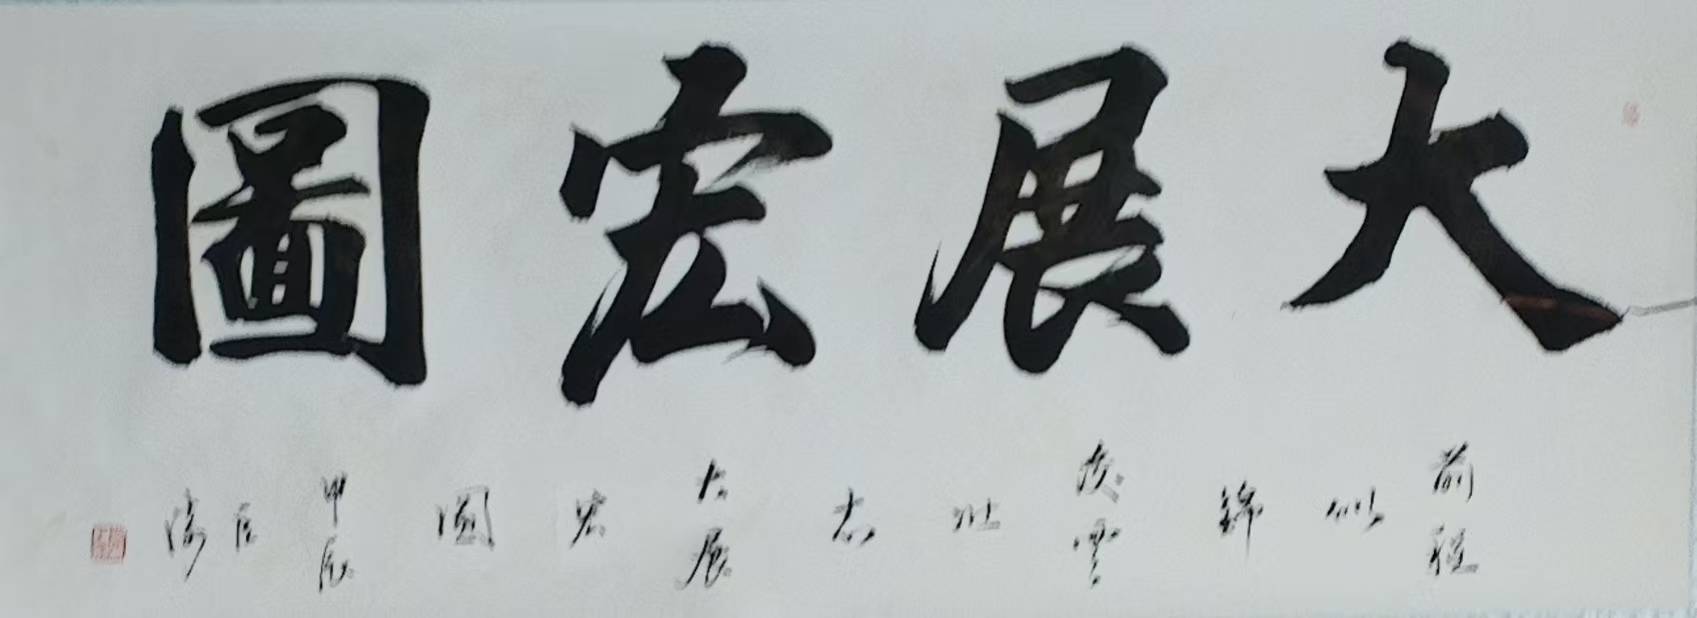 大展宏圖
前程似錦凌雲壯志大展宏圖甲辰